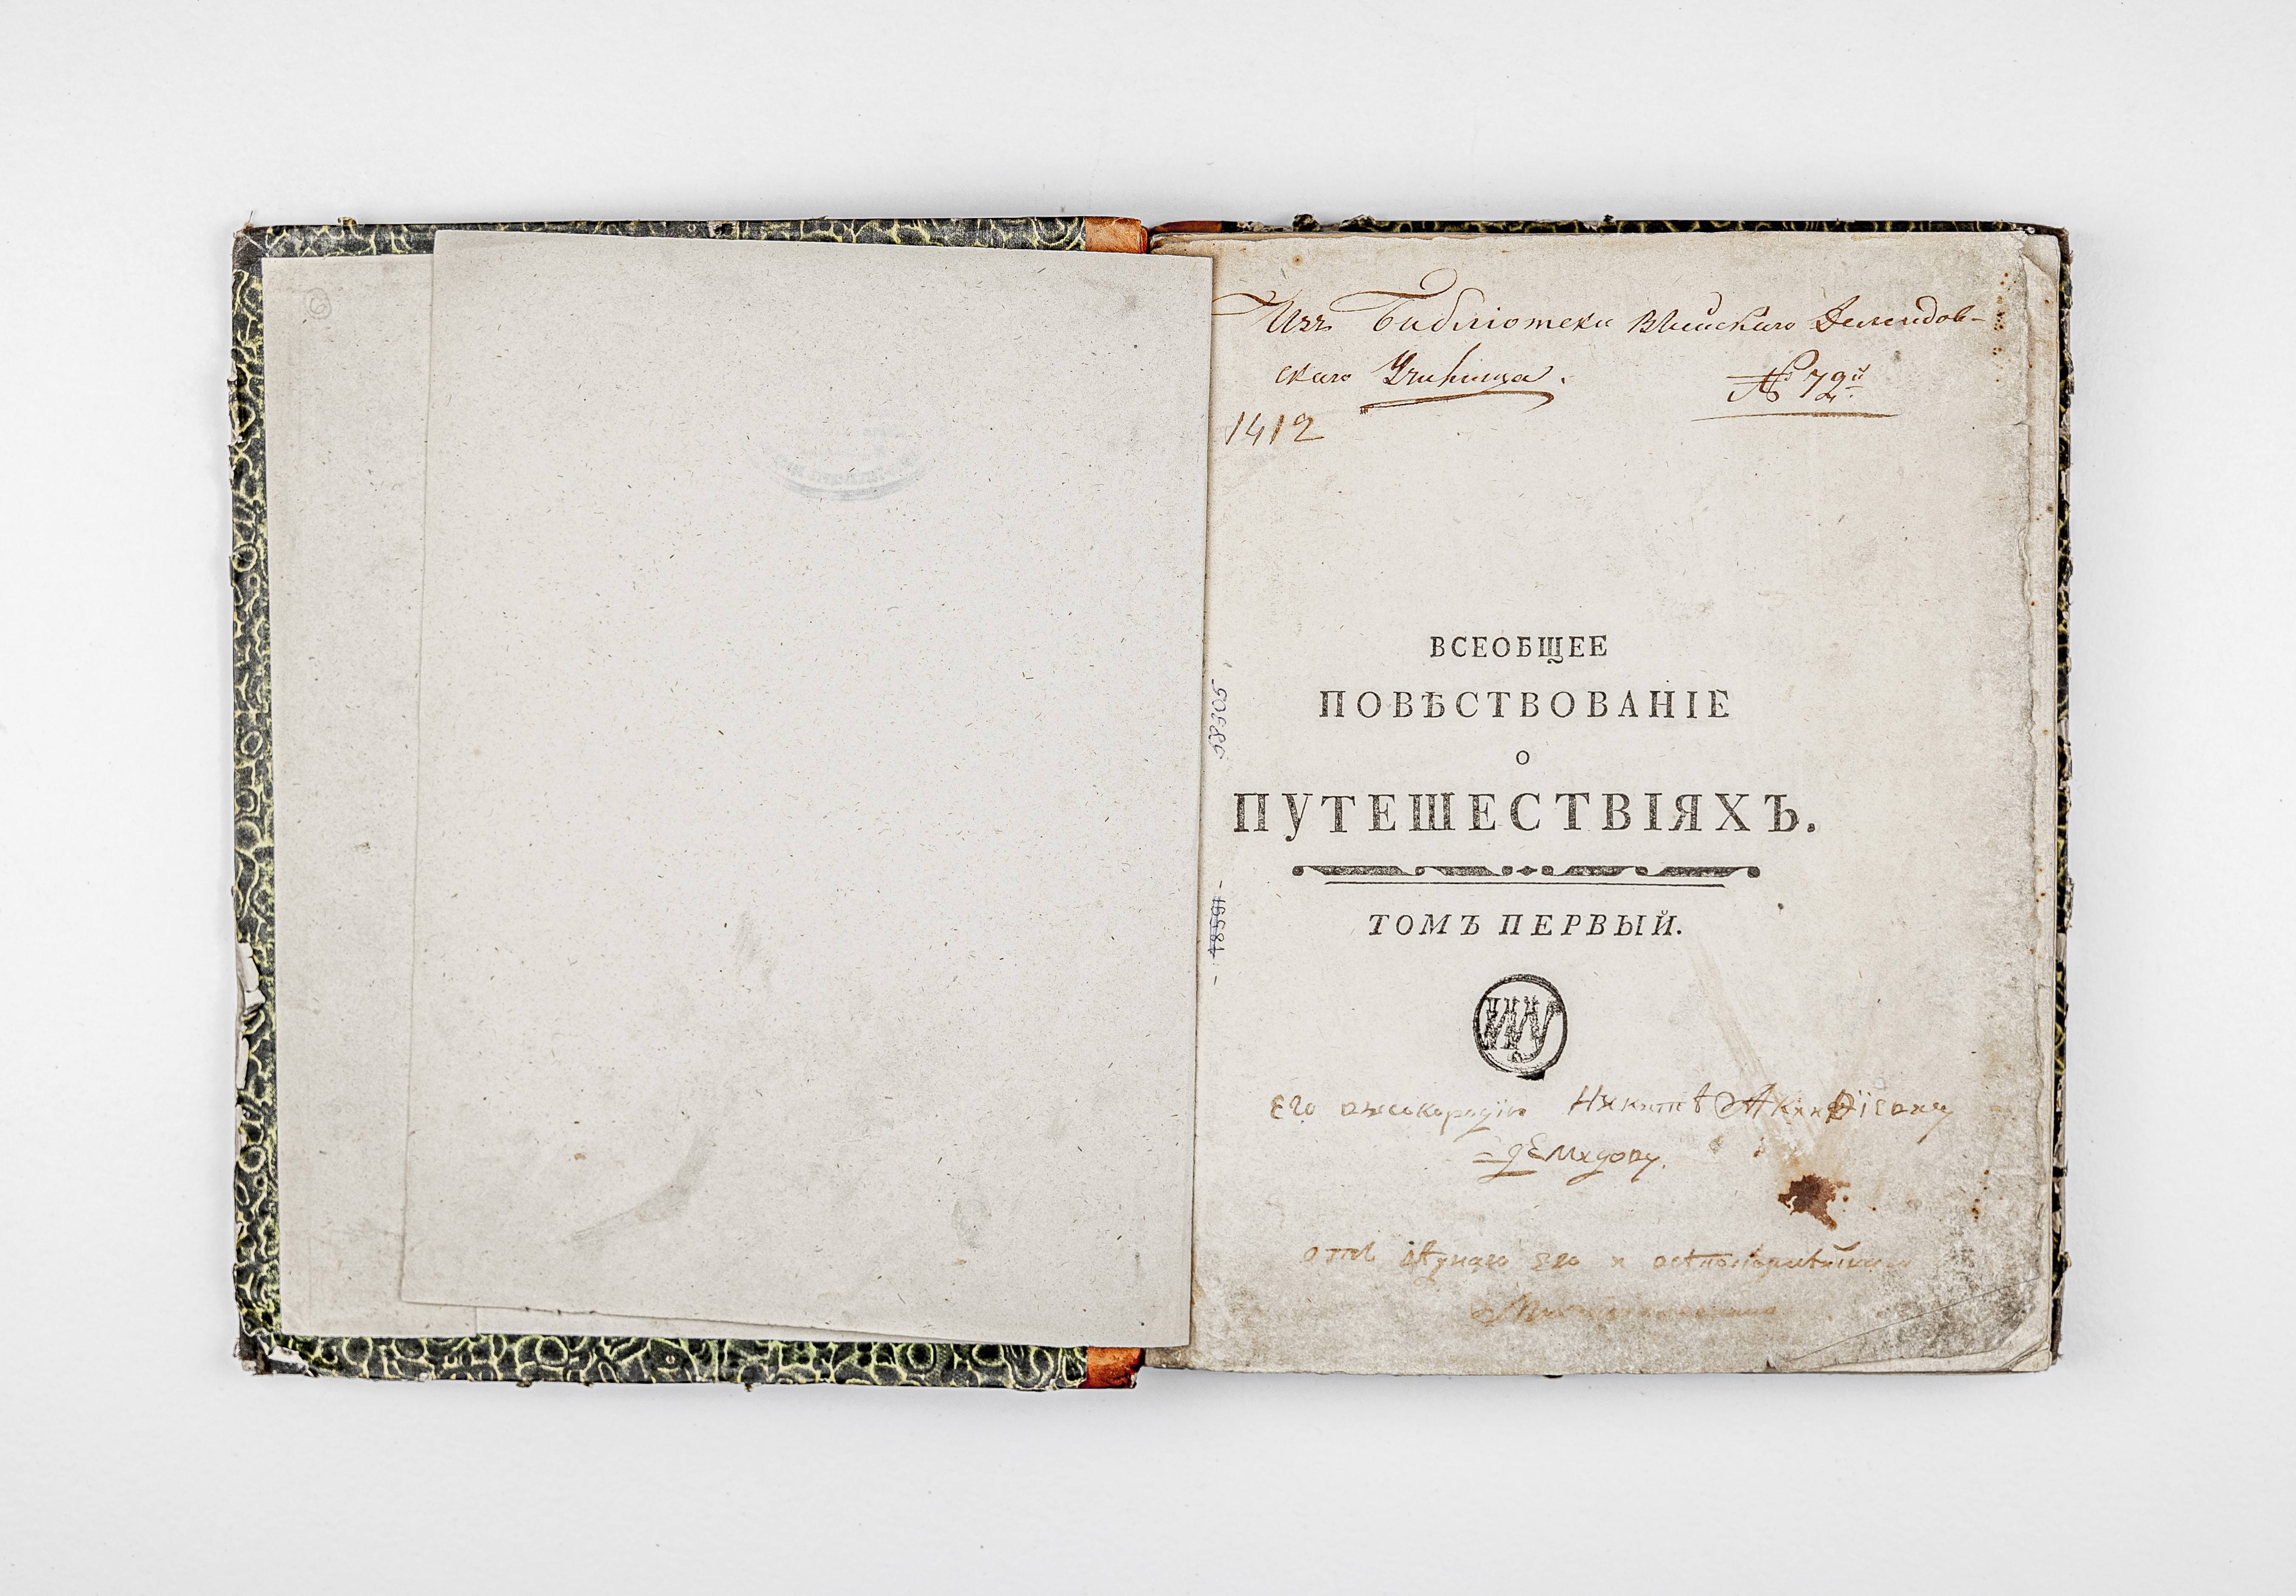 Изъ Библіотеки Выйскаго Демидов-
скаго Училища.
№ 79й
1412
ВСЕОБЩЕЕ
ПОВѢСТВОВАНІЕ
О
ПУТЕШЕСТВІЯХЪ.
ТОМЪ ПЕРВЫЙ.
Его высокородію Никитѣ Акинѳіевичу
Демидову.
отъ его и